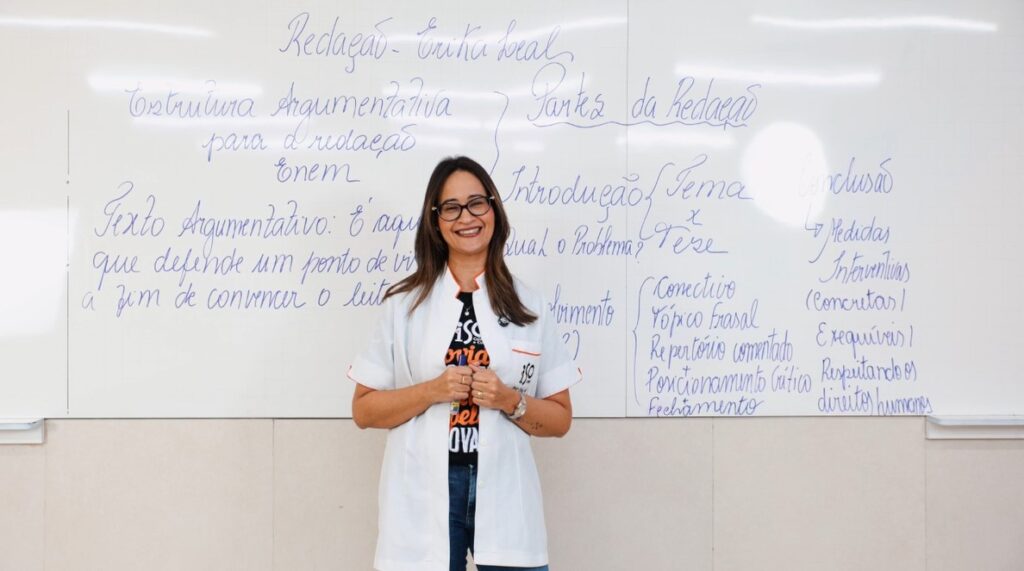 Redação - Erika Leal
Estrutura Argumentativa
para a redação
Enem
Texto Argumentativo: É aqu
que defende um ponto de vi
a fim de convencer o leit
Partes da Redação
Introdução
Tema
x
Tese
Qual o Problema?
lvimento
?)
Conectivo
Tópico frasal
Repertório comentado
Posicionamento Crítico
Fechamento
Conclusão
Medidas
Interventivas
(Concretas/
Exequíveis/
Respeitando os
direitos humanos
ISO
OVA